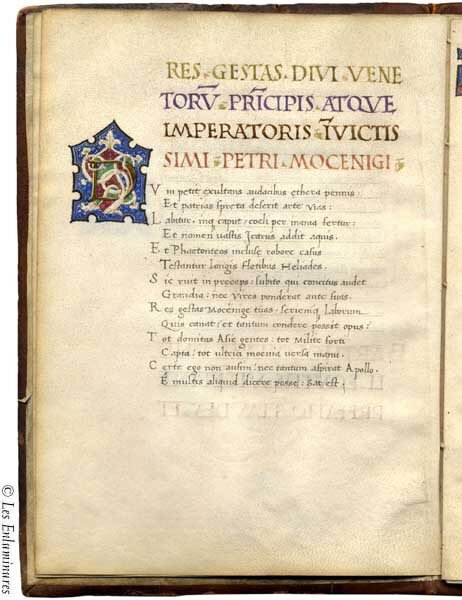 RES · GESTAS · DIVI · VENE
TORV̅ · PR̅ICIPIS · ATQVE
IMPERATORIS · I̅VICTIS
SIMI · PETRI · MOCENIGI
D
Vm petit exultans audacibus ethera pennis:
Et patrias spreta deserit arte vias:
Labitur. inq; caput: coeli per inania fertur:
Et nomen vastis Icarus addit aquis.
Et Phaetonteos incluse robore casus
Testantur longis fletibus Heliades.
Sic ruit in preceps: subito qui concitus audet
Grandia: nec vires ponderat ante suas.
Res gestas Mocenige tuas: seriemq; laborum
Quis canat: et tantum condere possit opus:
Tot domitas Asie gentes: tot milite forti
Capta: tot ultrici moenia versa manu.
Certe ego non ausim: nec tantum aspirat Apollo.
E multis aliquid dicere posse: Sat est.
© Les Enluminures